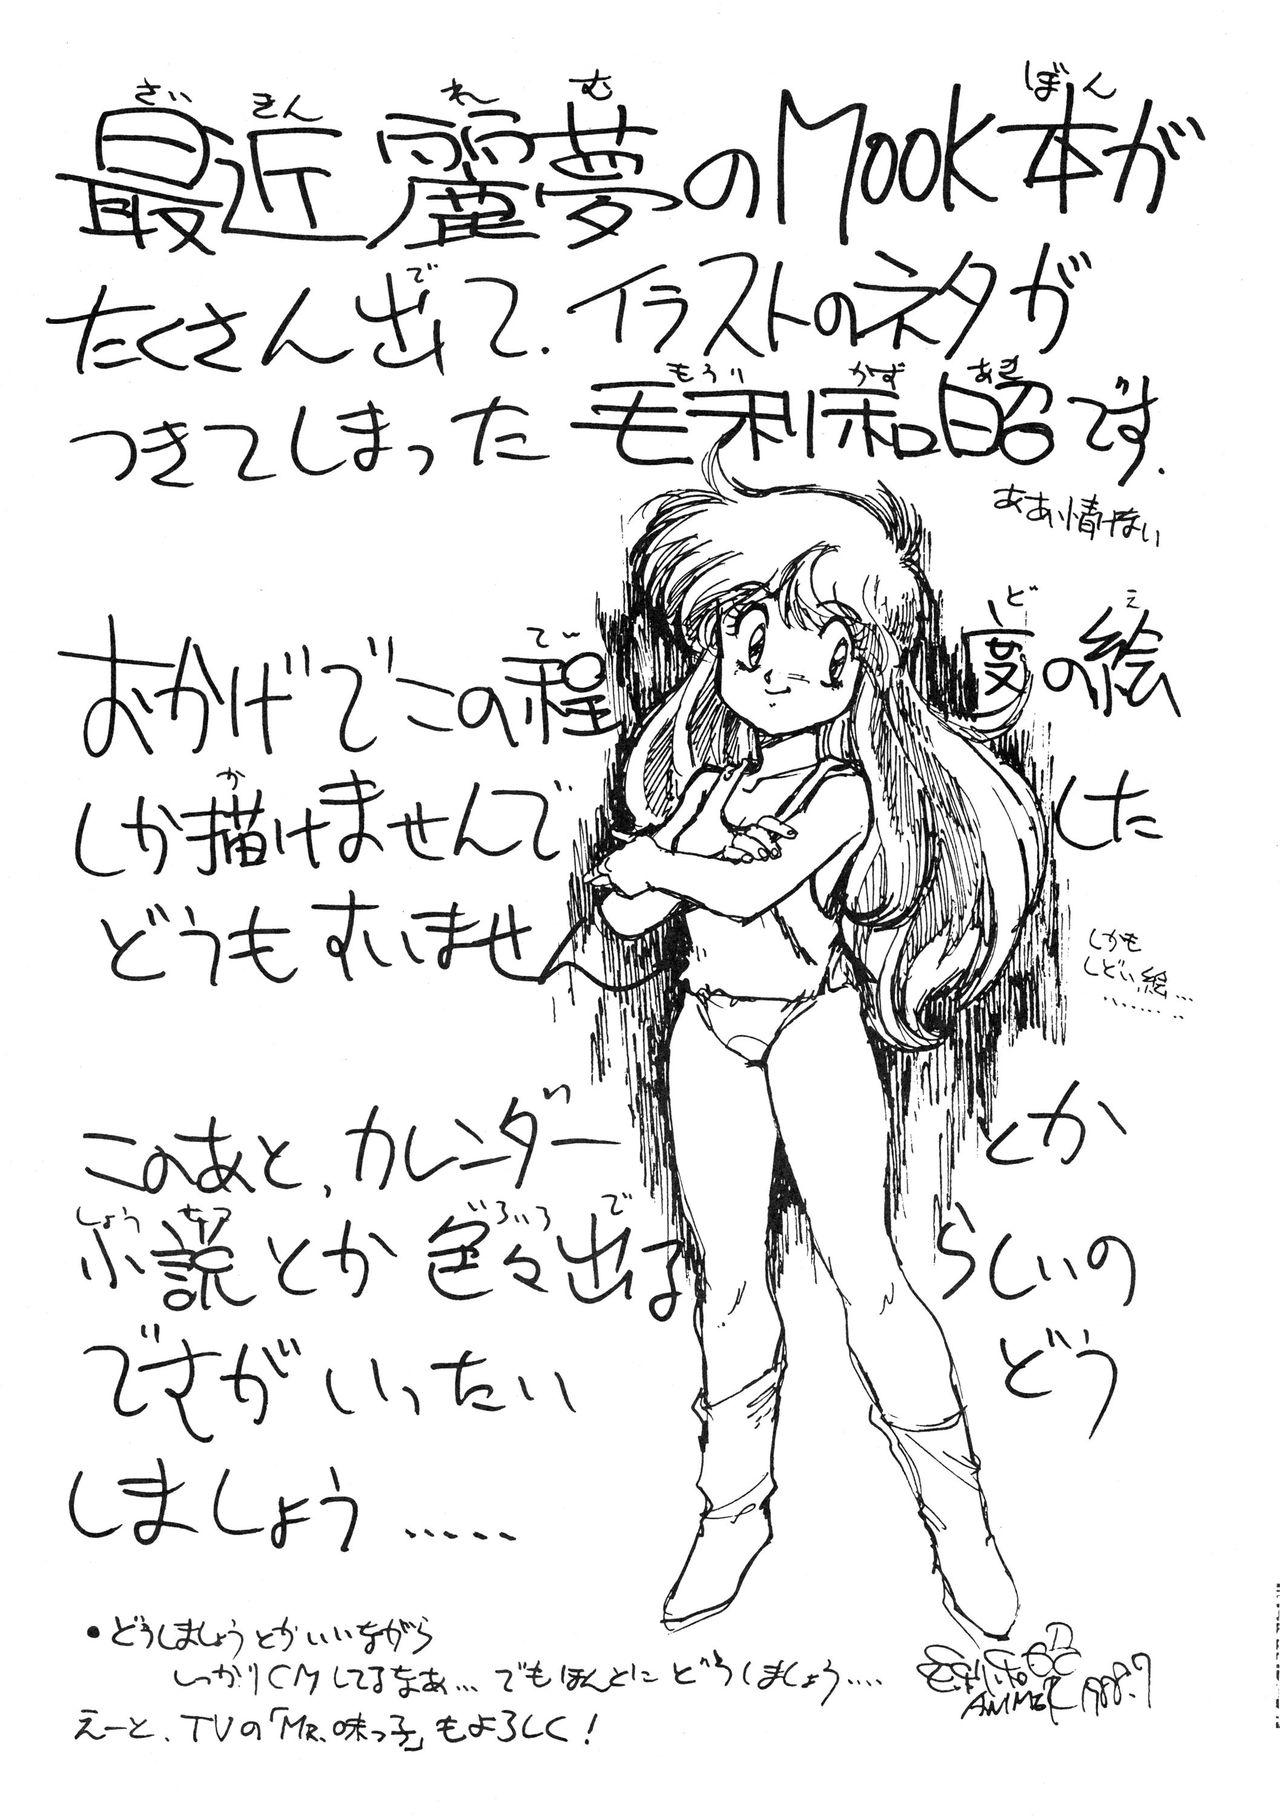 最近麗夢のMOOK本が
たくさん出て、イラストのネタが
つきてしまった毛利和昭です.
ああ、情けない
おかげでこの程度の絵
しか描けませんでした
どうもすいませ
しかも
しどい絵...
このあと、カレンダーとか
小説とか色々出るらしいの
ですがいったいどう
しましょう.....
•どうしましょうとかいいながら
しっかりCMしてるなあ...でもほんとにどうしましょう....
えーと、TVの「MR.味っ子」もよろしく!
1988.7